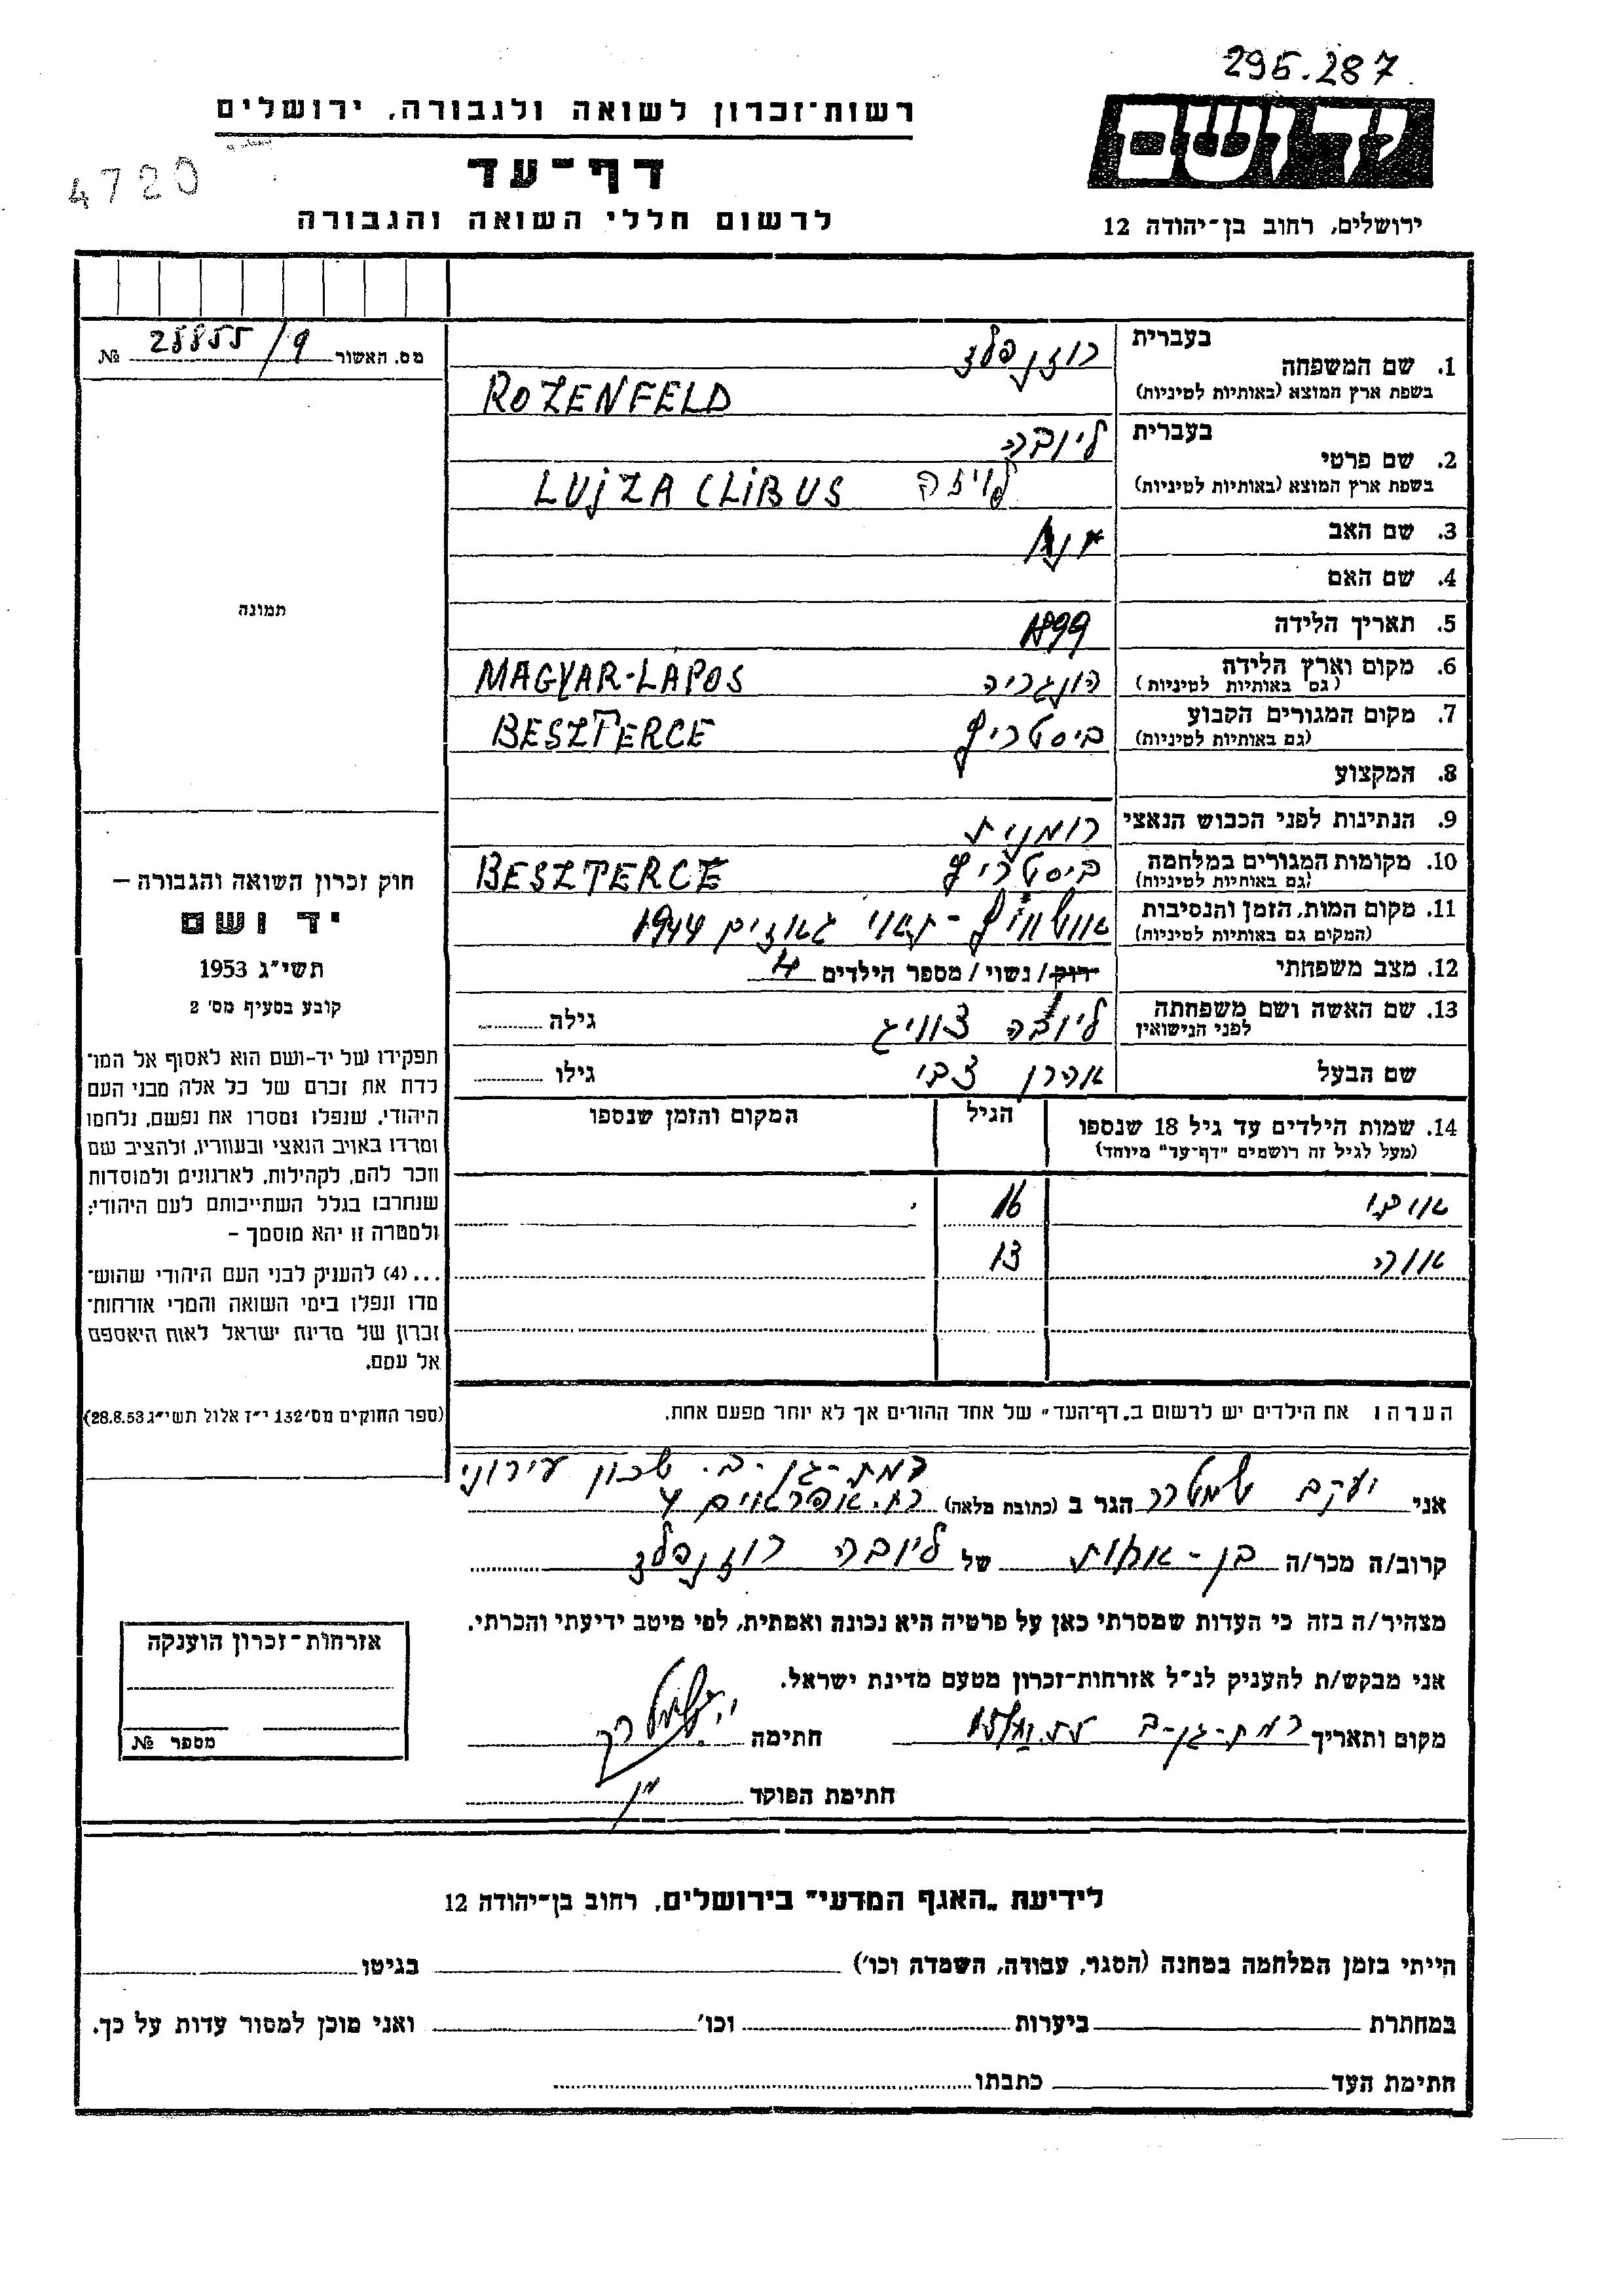 296.287
רשות־זכרון לשואה ולגבורה, ירושלים
ידושם
4720
דף־עד
לרשום חללי השואה והגבורה
ירושלים, רחוב בן־יהודה 12
מס. האשור 28855/9 №
בעברית
1. שם המשפחה רוזנפלד
בשפת ארץ המוצא (באותיות לטיניות) ROZENFELD
בעברית ליובה
2. שם פרטי
בשפת ארץ המוצא (באותיות לטיניות) לויזה LUJZA CLIBUS
3. שם האב
4. שם האם
5. תאריך הלידה 1899
6. מקום וארץ הלידה הונגריה MAGYAR-LAPOS
(גם באותיות לטיניות)
7. מקום המגורים הקבוע ביסטריץ BESZTERCE
(גם באותיות לטיניות)
8. המקצוע
9. הנתינות לפני הכבוש הנאצי רומנית
10. מקומות המגורים במלחמה ביסטריץ BESZTERCE
(גם באותיות לטיניות)
11. מקום המות, הזמן והנסיבות אושוויץ - תאי גאזים 1944
(המקום גם באותיות לטיניות)
12. מצב משפחתי רוק/ נשוי/ מספר הילדים 4
13. שם האשה ושם משפחתה ליובה צוויג גילה
לפני הנישואין
שם הבעל אהרן צבי גילו
14. שמות הילדים עד גיל 18 שנספו הגיל המקום והזמן שנספו
(מעל לגיל זה רושמים "דף־עד" מיוחד)
16
אווה 13
הערה: את הילדים יש לרשום ב„דף־העד" של אחד ההורים אך לא יותר מפעם אחת.
תמונה
חוק זכרון השואה והגבורה —
יד ושם
תשי"ג 1953
קובע בסעיף מס' 2
תפקידו של יד-ושם הוא לאסוף אל המו־
לדת את זכרם של כל אלה מבני העם
היהודי, שנפלו ומסרו את נפשם, נלחמו
ומרדו באויב הנאצי ובעוזריו, ולהציב שם
וזכר להם, לקהילות, לארגונים ולמוסדות
שנחרבו בגלל השתייכותם לעם היהודי;
ולמטרה זו יהא מוסמך –
...(4) להעניק לבני העם היהודי שהוש־
מדו ונפלו בימי השואה והמרי אזרחות־
זכרון של מדינת ישראל לאות היאספם
אל עמם.
(ספר החוקים מס' 132 י"ז אלול תשי"ג 28.8.53)
רמת-גן-ב. שכון עירוני
אני יעקב שמטרר הגר ב (כתובת מלאה) רח. אפראים 4
קרוב/ה מכר/ה בן - אחות של ליובה רוזנפלד
מצהיר/ה בזה כי העדות שמסרתי כאן על פרטיה היא נכונה ואמתית, לפי מיטב ידיעתי והכרתי.
אני מבקש/ת להעניק לנ"ל אזרחות־זכרון מטעם מדינת ישראל.
מקום ותאריך רמת-גן-ב חתימה
חתימת הפוקד
אזרחות־זכרון הוענקה
מספר №
לידיעת „האגף המדעי" בירושלים, רחוב בן־יהודה 12
הייתי בזמן המלחמה במחנה (הסגר, עבודה, השמדה וכו') בגיטו
במחתרת ביערות וכו' ואני מוכן למסור עדות על כך.
חתימת העד כתבתו